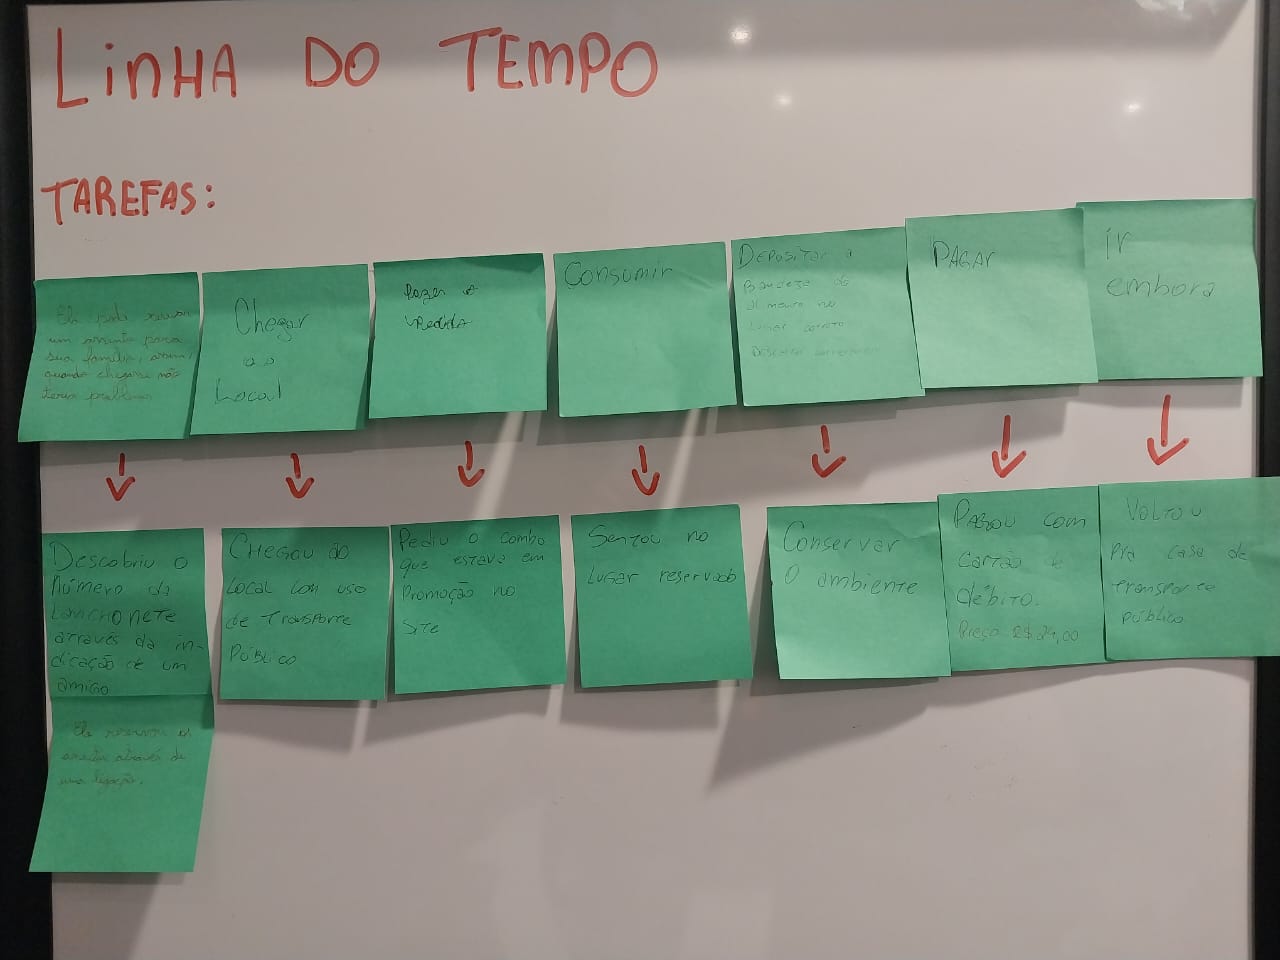 LinHA DO TEMPO
TAREFAS:
Ela pode reservar
um assento para
sua família, assim,
quando chegasse não
teria problemas
Chegar
ao
Local
Fazer o
Pedido
Consumir
DEPOSITAR a
do
alimento no
Lugar correto
PAGAR
ir
embora
Descobriu o
Número da
LANCHONETE
através da in-
dicação de um
amigo
Ela reservou os
através de
uma ligação.
CHEGOU ão
Local com uso
de Transporte
Público
Pediu o combo
que estava em
Promoção no
Site
Sentou no
Lugar reservado
Conservar
O ambiente
PAGOU com
Cartão de
débito.
Preço R$ 24,00
VOLTOU
Pra casa de
transporte
público